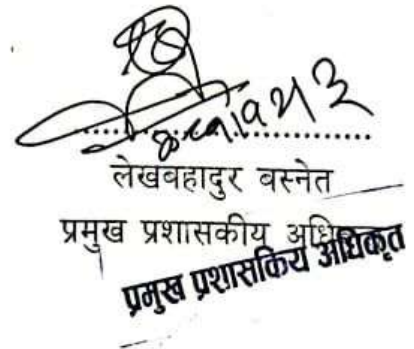 लेखबहादुर बस्नेत
प्रमुख प्रशासकीय
प्रमुख प्रशासकिय अधिकृत